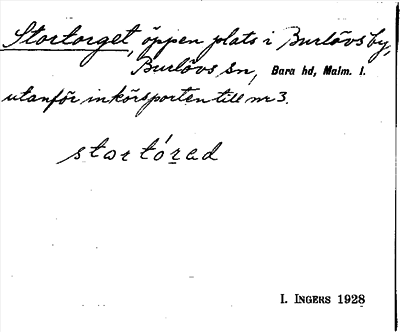 Stortorget, öppen plats i Burlövs by,
Burlövs sn, Bara hd, Malm. l.
utanför inkörsporten till nr 3.
stortórad
I. INGERS 1928